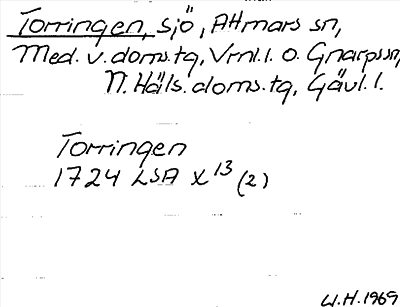 Torringen, sjö, Attmars sn,
Med. v. doms.tg, Vrnl.l. o. Gnarps sn,
N. Häls. doms.tg, Gävl.l.
Torringen
1724 LSA X 13 (2)
W.H. 1969